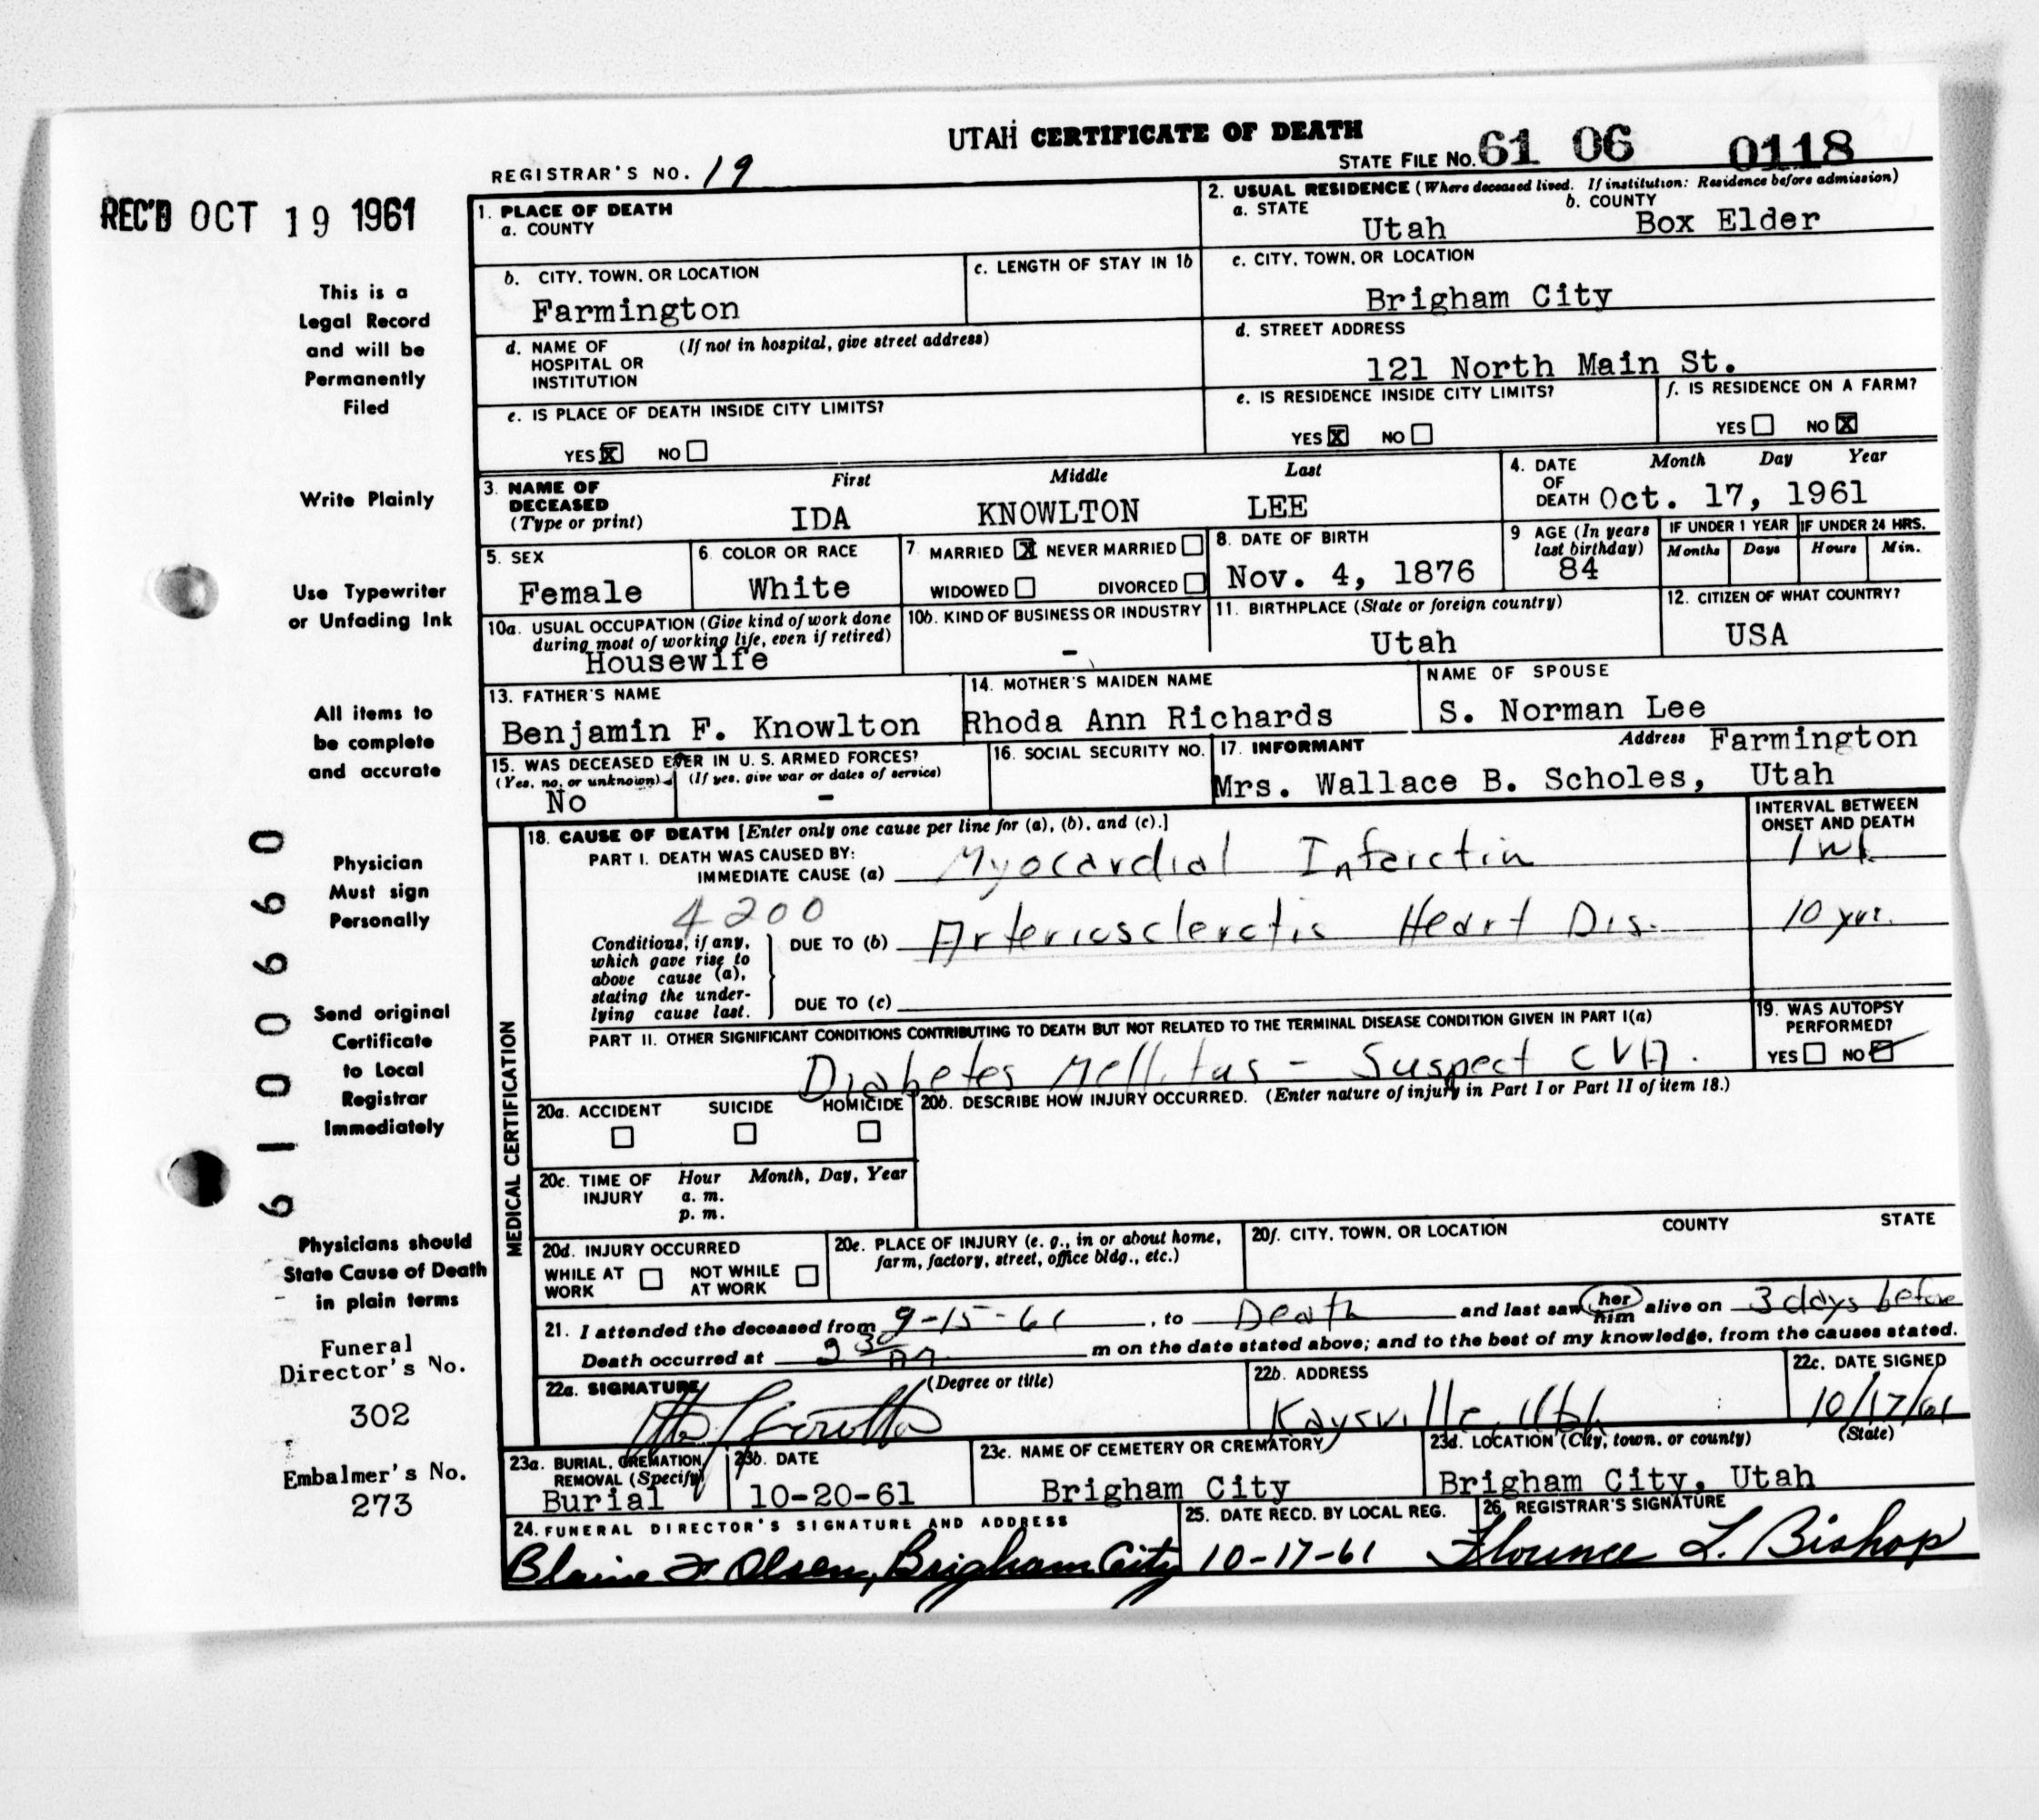 UTAH CERTIFICATE OF DEATH
REGISTRAR'S NO. 19
STATE FILE No. 61 06 0118
REC'D OCT 19 1961
This is a
Legal Record
and will be
Permanently
Filed
Write Plainly
Use Typewriter
or Unfading Ink
All items to
be complete
and accurate
Physician
Must sign
Personally
Send original
Certificate
to Local
Registrar
Immediately
Physicians should
State Cause of Death
in plain terms
Funeral
Director's No.
302
Embalmer's No.
273
6100660
1. PLACE OF DEATH
a. COUNTY
2. USUAL RESIDENCE (Where deceased lived. If institution: Residence before admission)
a. STATE Utah b. COUNTY Box Elder
b. CITY, TOWN, OR LOCATION
Farmington
c. LENGTH OF STAY IN 1b
c. CITY, TOWN, OR LOCATION
Brigham City
d. NAME OF HOSPITAL OR INSTITUTION (If not in hospital, give street address)
d. STREET ADDRESS
121 North Main St.
e. IS PLACE OF DEATH INSIDE CITY LIMITS?
YES X NO
e. IS RESIDENCE INSIDE CITY LIMITS?
YES X NO
f. IS RESIDENCE ON A FARM?
YES NO X
3. NAME OF DECEASED (Type or print)
First Middle Last
IDA KNOWLTON LEE
4. DATE OF DEATH Month Day Year
Oct. 17, 1961
5. SEX
Female
6. COLOR OR RACE
White
7. MARRIED X NEVER MARRIED
WIDOWED DIVORCED
8. DATE OF BIRTH
Nov. 4, 1876
9 AGE (In years last birthday)
84
IF UNDER 1 YEAR
Months Days
IF UNDER 24 HRS.
Hours Min.
10a. USUAL OCCUPATION (Give kind of work done during most of working life, even if retired)
Housewife
10b. KIND OF BUSINESS OR INDUSTRY
-
11. BIRTHPLACE (State or foreign country)
Utah
12. CITIZEN OF WHAT COUNTRY?
USA
13. FATHER'S NAME
Benjamin F. Knowlton
14. MOTHER'S MAIDEN NAME
Rhoda Ann Richards
NAME OF SPOUSE
S. Norman Lee
15. WAS DECEASED EVER IN U. S. ARMED FORCES?
(Yes, no, or unknown) (If yes, give war or dates of service)
No -
16. SOCIAL SECURITY NO.
17. INFORMANT Address Farmington
Mrs. Wallace B. Scholes, Utah
MEDICAL CERTIFICATION
18. CAUSE OF DEATH [Enter only one cause per line for (a), (b), and (c).]
INTERVAL BETWEEN ONSET AND DEATH
PART I. DEATH WAS CAUSED BY:
IMMEDIATE CAUSE (a) Myocardial Infarctin 1 wk
4200
Conditions, if any, which gave rise to above cause (a), stating the underlying cause last.
DUE TO (b) Arteriosclerotic Heart Dis. 10 yrs.
DUE TO (c)
PART II. OTHER SIGNIFICANT CONDITIONS CONTRIBUTING TO DEATH BUT NOT RELATED TO THE TERMINAL DISEASE CONDITION GIVEN IN PART I(a)
Diabetes Mellitus - Suspect CVA.
19. WAS AUTOPSY PERFORMED?
YES NO
20a. ACCIDENT SUICIDE HOMICIDE
20b. DESCRIBE HOW INJURY OCCURRED. (Enter nature of injury in Part I or Part II of item 18.)
20c. TIME OF INJURY Hour Month, Day, Year
a. m.
p. m.
20d. INJURY OCCURRED
WHILE AT WORK NOT WHILE AT WORK
20e. PLACE OF INJURY (e. g., in or about home, farm, factory, street, office bldg., etc.)
20f. CITY, TOWN, OR LOCATION COUNTY STATE
21. I attended the deceased from 9-15-61, to Death and last saw her him alive on 3 days before
Death occurred at 2 30 AM m on the date stated above; and to the best of my knowledge, from the causes stated.
22a. SIGNATURE (Degree or title)
22b. ADDRESS
Kaysville, Utah
22c. DATE SIGNED
10/17/61
23a. BURIAL, CREMATION, REMOVAL (Specify)
Burial
23b. DATE
10-20-61
23c. NAME OF CEMETERY OR CREMATORY
Brigham City
23d. LOCATION (City, town, or county) (State)
Brigham City, Utah
24. FUNERAL DIRECTOR'S SIGNATURE AND ADDRESS
Blaine F. Olsen, Brigham City
25. DATE RECD. BY LOCAL REG.
10-17-61
26. REGISTRAR'S SIGNATURE
Florence L. Bishop